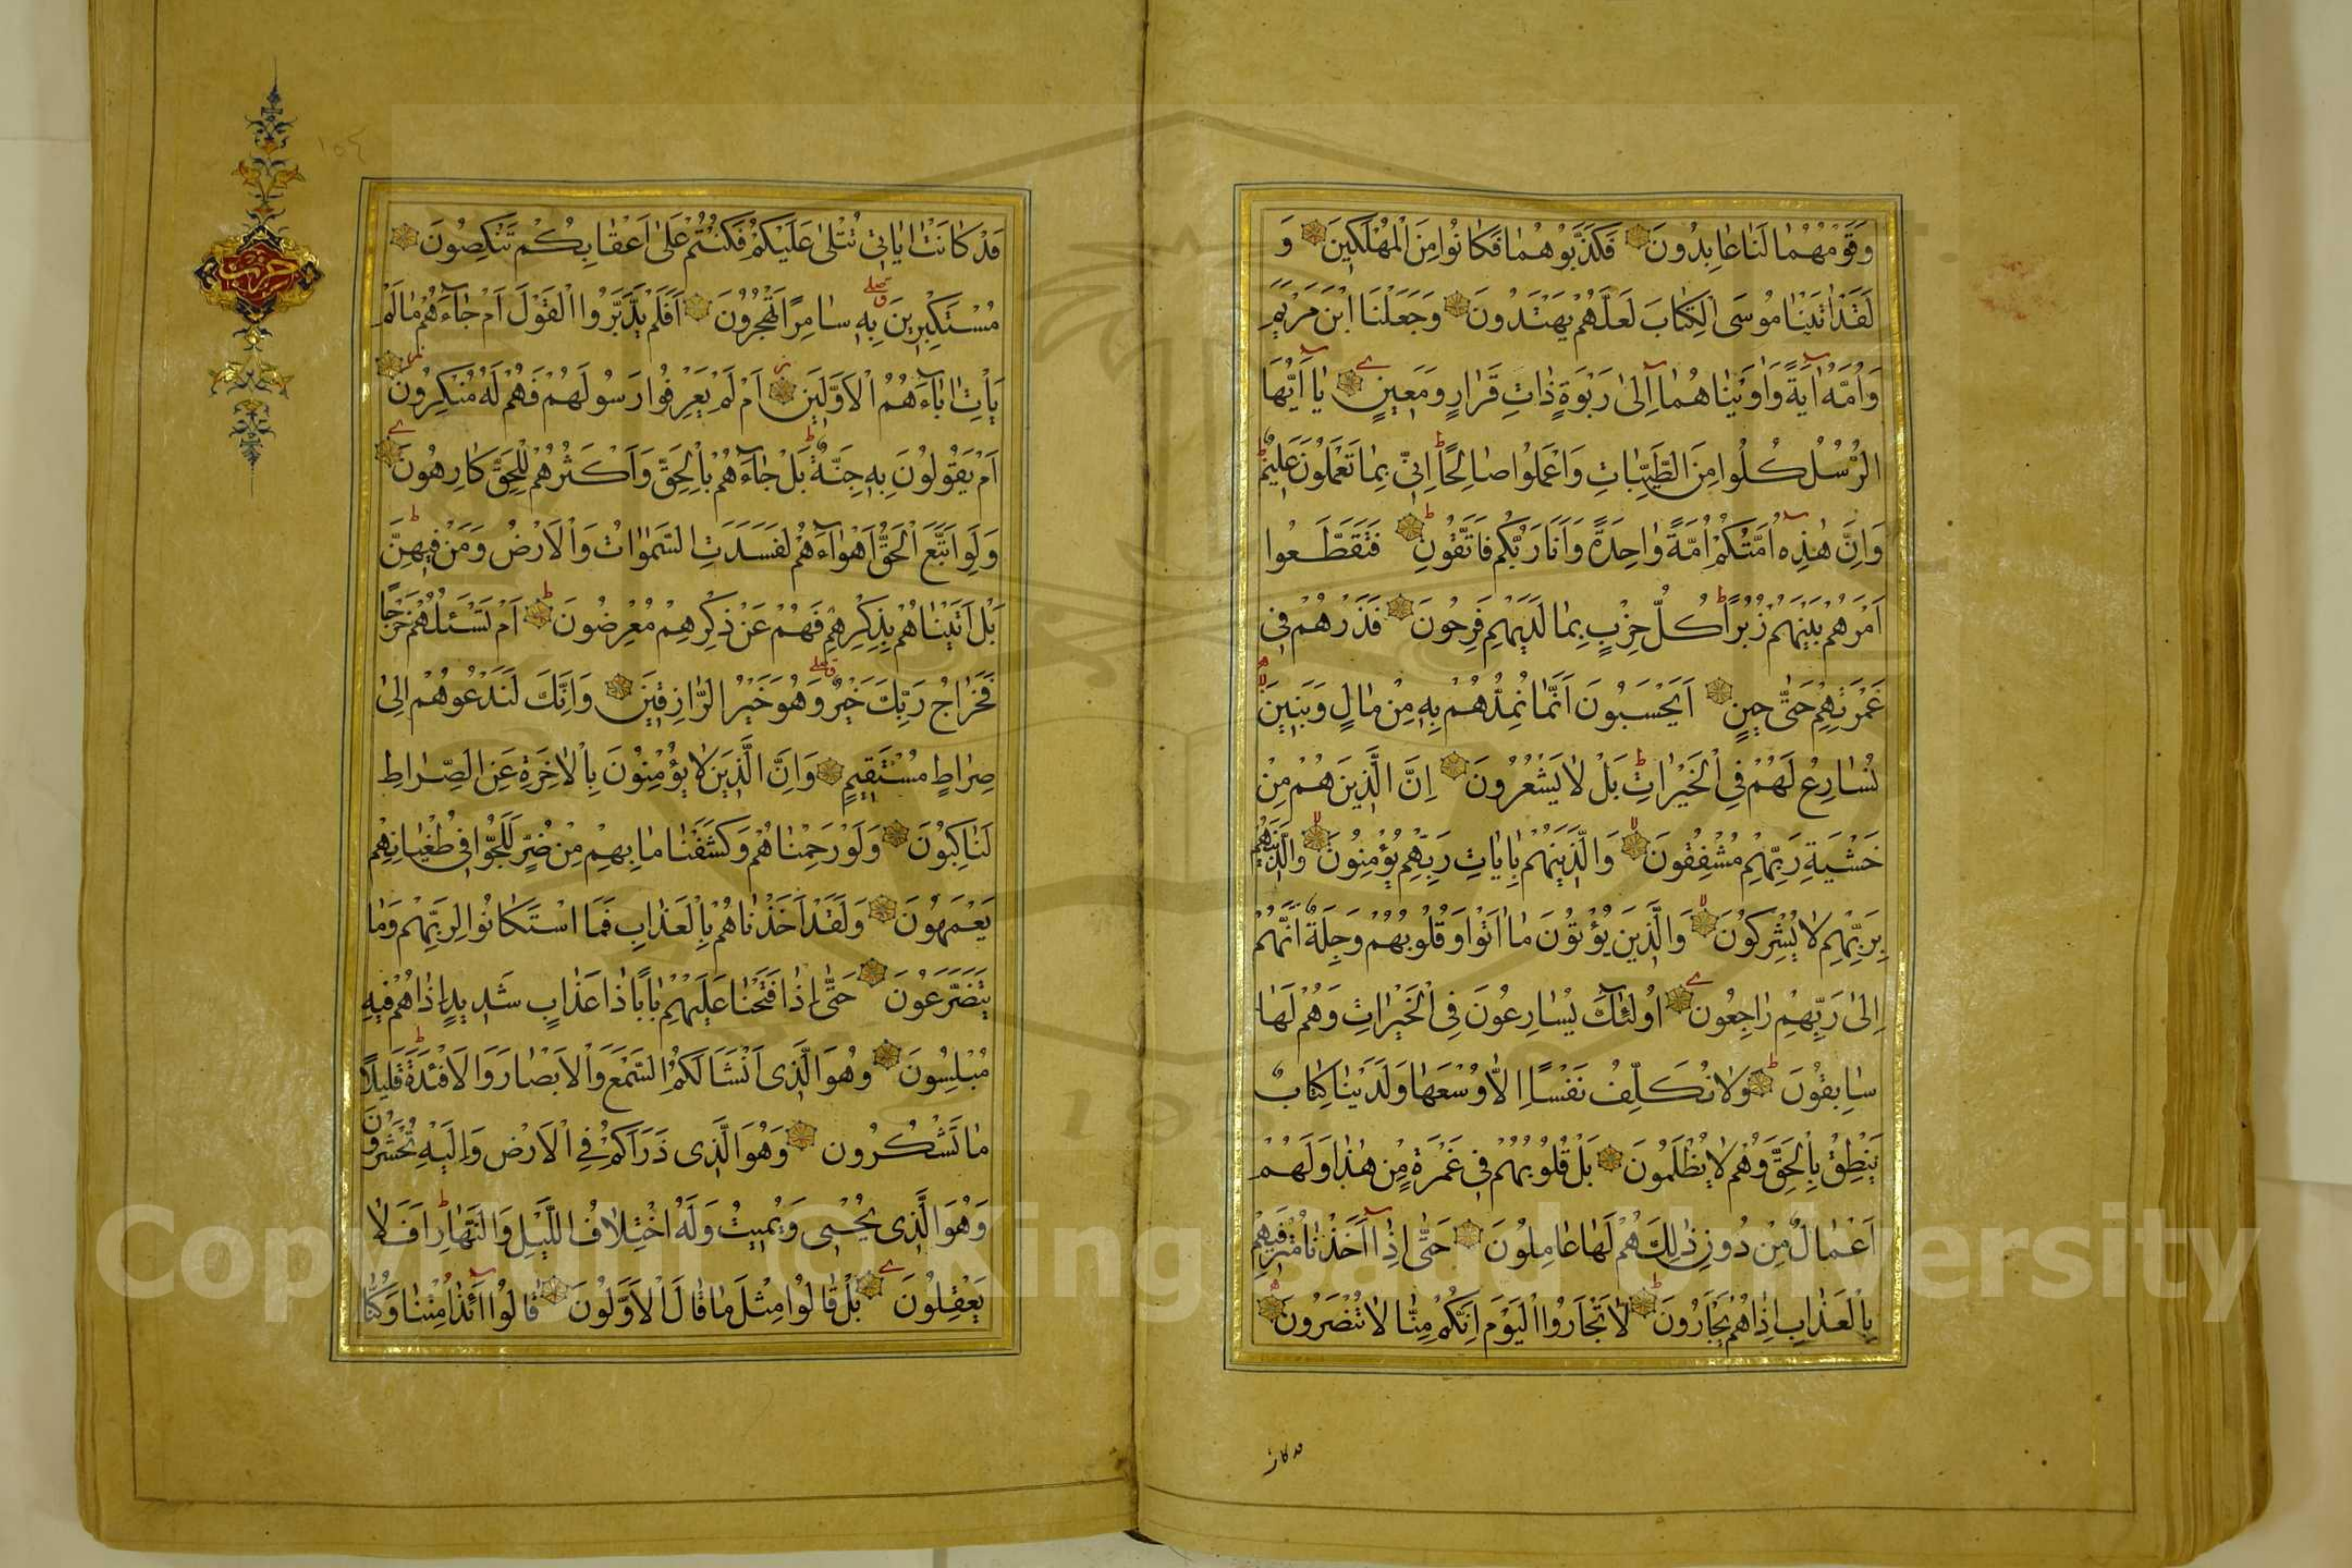 وَقَوْمُهُمَا لَنَا عَابِدُونَ فَكَذَّبُوهُمَا فَكَانُوا مِنَ الْمُهْلَكِينَ وَ
لَقَدْ اٰتَيْنَا مُوسَى الْكِتَابَ لَعَلَّهُمْ يَهْتَدُونَ وَجَعَلْنَا ابْنَ مَرْيَمَ
وَاُمَّهُ اٰيَةً وَاٰوَيْنَاهُمَا اِلٰى رَبْوَةٍ ذَاتِ قَرَارٍ وَمَعِينٍ يَا اَيُّهَا
الرُّسُلُ كُلُوا مِنَ الطَّيِّبَاتِ وَاعْمَلُوا صَالِحًا اِنِّي بِمَا تَعْمَلُونَ عَلِيمٌ
وَاِنَّ هٰذِهِ اُمَّتُكُمْ اُمَّةً وَاحِدَةً وَاَنَا رَبُّكُمْ فَاتَّقُونِ فَتَقَطَّعُوا
اَمْرَهُمْ بَيْنَهُمْ زُبُرًا كُلُّ حِزْبٍ بِمَا لَدَيْهِمْ فَرِحُونَ فَذَرْهُمْ فِي
غَمْرَتِهِمْ حَتّٰى حِينٍ اَيَحْسَبُونَ اَنَّمَا نُمِدُّهُمْ بِهِ مِنْ مَالٍ وَبَنِينَ
نُسَارِعُ لَهُمْ فِي الْخَيْرَاتِ بَلْ لَا يَشْعُرُونَ اِنَّ الَّذِينَ هُمْ مِنْ
خَشْيَةِ رَبِّهِمْ مُشْفِقُونَ وَالَّذِينَ هُمْ بِاٰيَاتِ رَبِّهِمْ يُؤْمِنُونَ وَالَّذِينَ هُمْ
بِرَبِّهِمْ لَا يُشْرِكُونَ وَالَّذِينَ يُؤْتُونَ مَا اٰتَوْا وَقُلُوبُهُمْ وَجِلَةٌ اَنَّهُمْ
اِلٰى رَبِّهِمْ رَاجِعُونَ اُولٰئِكَ يُسَارِعُونَ فِي الْخَيْرَاتِ وَهُمْ لَهَا
سَابِقُونَ وَلَا نُكَلِّفُ نَفْسًا اِلَّا وُسْعَهَا وَلَدَيْنَا كِتَابٌ
يَنْطِقُ بِالْحَقِّ وَهُمْ لَا يُظْلَمُونَ بَلْ قُلُوبُهُمْ فِي غَمْرَةٍ مِنْ هٰذَا وَلَهُمْ
اَعْمَالٌ مِنْ دُونِ ذٰلِكَ هُمْ لَهَا عَامِلُونَ حَتّٰى اِذَا اَخَذْنَا مُتْرَفِيهِمْ
بِالْعَذَابِ اِذَا هُمْ يَجْاَرُونَ لَا تَجْاَرُوا الْيَوْمَ اِنَّكُمْ مِنَّا لَا تُنْصَرُونَ
قد كان
حزب
١٥٤
قَدْ كَانَتْ اٰيَاتِي تُتْلٰى عَلَيْكُمْ فَكُنْتُمْ عَلٰى اَعْقَابِكُمْ تَنْكِصُونَ
مُسْتَكْبِرِينَ بِهِ سَامِرًا تَهْجُرُونَ اَفَلَمْ يَدَّبَّرُوا الْقَوْلَ اَمْ جَاءَهُمْ مَا لَمْ
يَأْتِ اٰبَاءَهُمُ الْاَوَّلِينَ اَمْ لَمْ يَعْرِفُوا رَسُولَهُمْ فَهُمْ لَهُ مُنْكِرُونَ
اَمْ يَقُولُونَ بِهِ جِنَّةٌ بَلْ جَاءَهُمْ بِالْحَقِّ وَاَكْثَرُهُمْ لِلْحَقِّ كَارِهُونَ
وَلَوِ اتَّبَعَ الْحَقُّ اَهْوَاءَهُمْ لَفَسَدَتِ السَّمٰوَاتُ وَالْاَرْضُ وَمَنْ فِيهِنَّ
بَلْ اَتَيْنَاهُمْ بِذِكْرِهِمْ فَهُمْ عَنْ ذِكْرِهِمْ مُعْرِضُونَ اَمْ تَسْئَلُهُمْ خَرْجًا
فَخَرَاجُ رَبِّكَ خَيْرٌ وَهُوَ خَيْرُ الرَّازِقِينَ وَاِنَّكَ لَتَدْعُوهُمْ اِلٰى
صِرَاطٍ مُسْتَقِيمٍ وَاِنَّ الَّذِينَ لَا يُؤْمِنُونَ بِالْاٰخِرَةِ عَنِ الصِّرَاطِ
لَنَاكِبُونَ وَلَوْ رَحِمْنَاهُمْ وَكَشَفْنَا مَا بِهِمْ مِنْ ضُرٍّ لَلَجُّوا فِي طُغْيَانِهِمْ
يَعْمَهُونَ وَلَقَدْ اَخَذْنَاهُمْ بِالْعَذَابِ فَمَا اسْتَكَانُوا لِرَبِّهِمْ وَمَا
يَتَضَرَّعُونَ حَتّٰى اِذَا فَتَحْنَا عَلَيْهِمْ بَابًا ذَا عَذَابٍ شَدِيدٍ اِذَا هُمْ فِيهِ
مُبْلِسُونَ وَهُوَ الَّذِي اَنْشَاَ لَكُمُ السَّمْعَ وَالْاَبْصَارَ وَالْاَفْئِدَةَ قَلِيلًا
مَا تَشْكُرُونَ وَهُوَ الَّذِي ذَرَاَكُمْ فِي الْاَرْضِ وَاِلَيْهِ تُحْشَرُونَ
وَهُوَ الَّذِي يُحْيِي وَيُمِيتُ وَلَهُ اخْتِلَافُ اللَّيْلِ وَالنَّهَارِ اَفَلَا
يَعْقِلُونَ بَلْ قَالُوا مِثْلَ مَا قَالَ الْاَوَّلُونَ قَالُوا اَئِذَا مِتْنَا وَكُنَّا
Copyright © King Saud University
195